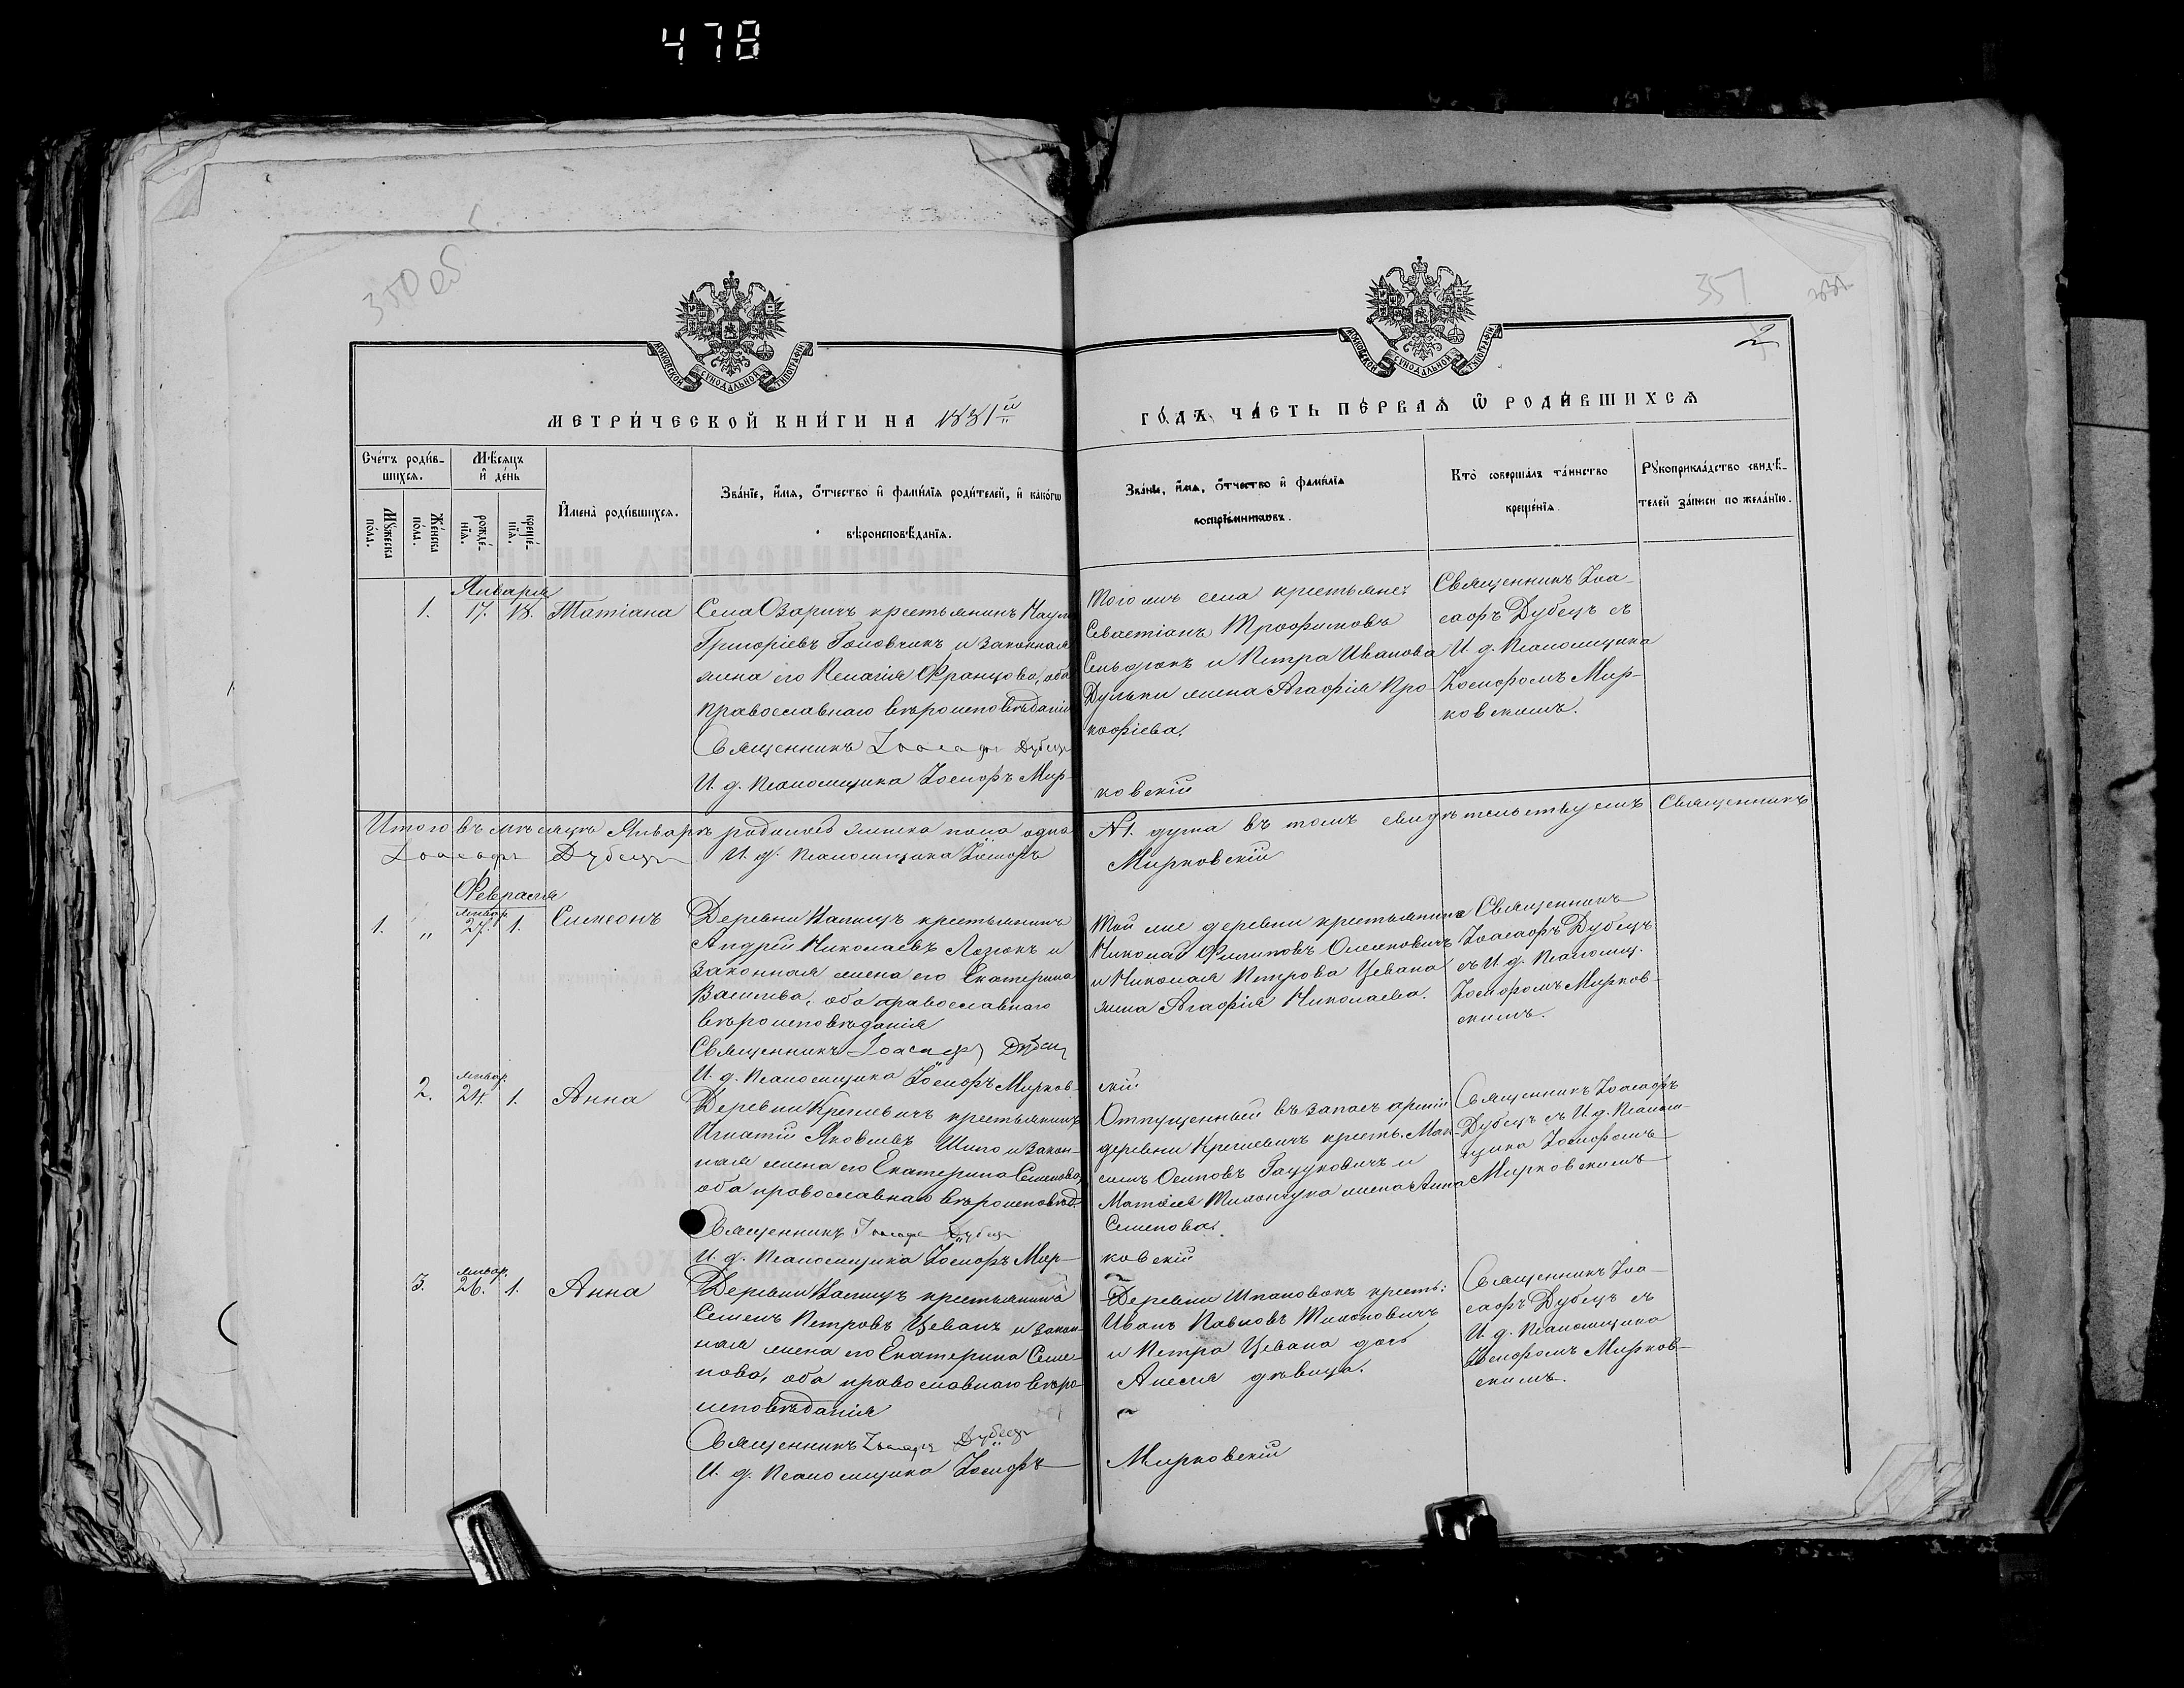 478
350 об
351
2
МОСКОВСКОЙ СѴНОДАЛЬНОЙ ТИПОГРАФІИ
МОСКОВСКОЙ СѴНОДАЛЬНОЙ ТИПОГРАФІИ
МЕТРИ́ЧЕСКОЙ КНИ́ГИ НА 1881й
ГО́ДЪ ЧА́СТЬ ПЕ́РВАѦ Ѡ РОДИ́ВШИХСѦ
Сче́тъ роди́в-
шихсѧ.
Мꙋ́жеска
по́ла.
Же́нска
по́ла.
Мѣ́сѧцъ
и҆ де́нь
рожде́-
нїѧ.
креще́-
нїѧ.
И҆мена̀ роди́вшихсѧ.
Зва́нїе, и҆́мѧ, ѻ҆́тчество и҆ фамі́лїѧ роди́телей, и҆ како́гѡ
вѣроисповѣ́данїѧ.
Зва́нїе, и҆́мѧ, ѻ҆́тчество и҆ фамі́лїѧ
воспрїе́мникѡвъ.
Кто̀ соверша́лъ та́инство
креще́нїѧ.
Рꙋкоприкла́дство свидѣ́-
телей за́писи по жела́нїю.
Января
1. 17. 18. Татіана
Села Озаричъ крестьянинъ Наумъ
Григоріевъ Головчикъ и законная
жена его Пелагія Францова, оба
православнаго вѣроисповѣданія
Священникъ Іоасафъ Дубецъ
И. д. Псаломщика Іосифъ Мир-
Того жъ села крестьяне:
Севастіанъ Трофимовъ
Сельдюкъ и Петра Иванова
Дульки жена Агафія Про-
кофіева.
ковскій
Священникъ Іоа-
сафъ Дубецъ съ
И. д. Псаломщика
Іосифомъ Мир-
ковскимъ.
Итого въ мѣсяцѣ Январѣ родилось женска пола одна
№1. душа въ томъ свидѣтельствуемъ Священникъ
Іоасафъ Дубецъ И. д. Псаломщика Іосифъ
Мирковскій
Февраля
1. „ Январ. 27. 1. Симеонъ
Деревни Калицъ крестьянинъ
Андрей Николаевъ Лозюкъ и
законная жена его Екатерина
Васильева, оба православнаго
вѣроисповѣданія
Священникъ Іоасафъ Дубецъ
И. д. Псаломщика Іосифъ Мирков-
Той же деревни крестьянинъ
Николай Филиповъ Олехновичъ
и Николая Петрова Цевана
жена Агафія Николаева.
скій
Священникъ
Іоасафъ Дубецъ
съ И. д. Псаломщ.
Іосифомъ Мирков-
скимъ.
2. Январ. 24. 1. Анна
Деревни Крушевичъ крестьянинъ
Игнатій Яковлевъ Шило и закон-
ная жена его Екатерина Семенова,
оба православнаго вѣроисповѣд.
Священникъ Іоасафъ Дубецъ
И. д. Псаломщика Іосифъ Мир-
Отпущенный въ запасъ арміи
деревни Крушевичъ крестъ. Мак-
симъ Осиповъ Гацуковичъ и
Матвея Тихончука жена Анна
Семенова.
ковскій
Священникъ Іоасафъ
Дубецъ съ И. д. Псалом-
щика Іосифомъ
Мирковскимъ
3. Январ. 26. 1. Анна
Деревни Калицъ крестьянинъ
Семенъ Петровъ Цеванъ и закон-
ная жена его Екатерина Семе-
нова, оба православнаго вѣро-
исповѣданія
Священникъ Іоасафъ Дубецъ
И. д. Псаломщика Іосифъ
Деревни Шпановокъ крестъ:
Иванъ Павловъ Тихоновичъ
и Петра Цевана дочь
Алеся дѣвица.
Мирковскій
Священникъ Іоа-
сафъ Дубецъ съ
И. д. Псаломщика
Іосифомъ Мирков-
скимъ.